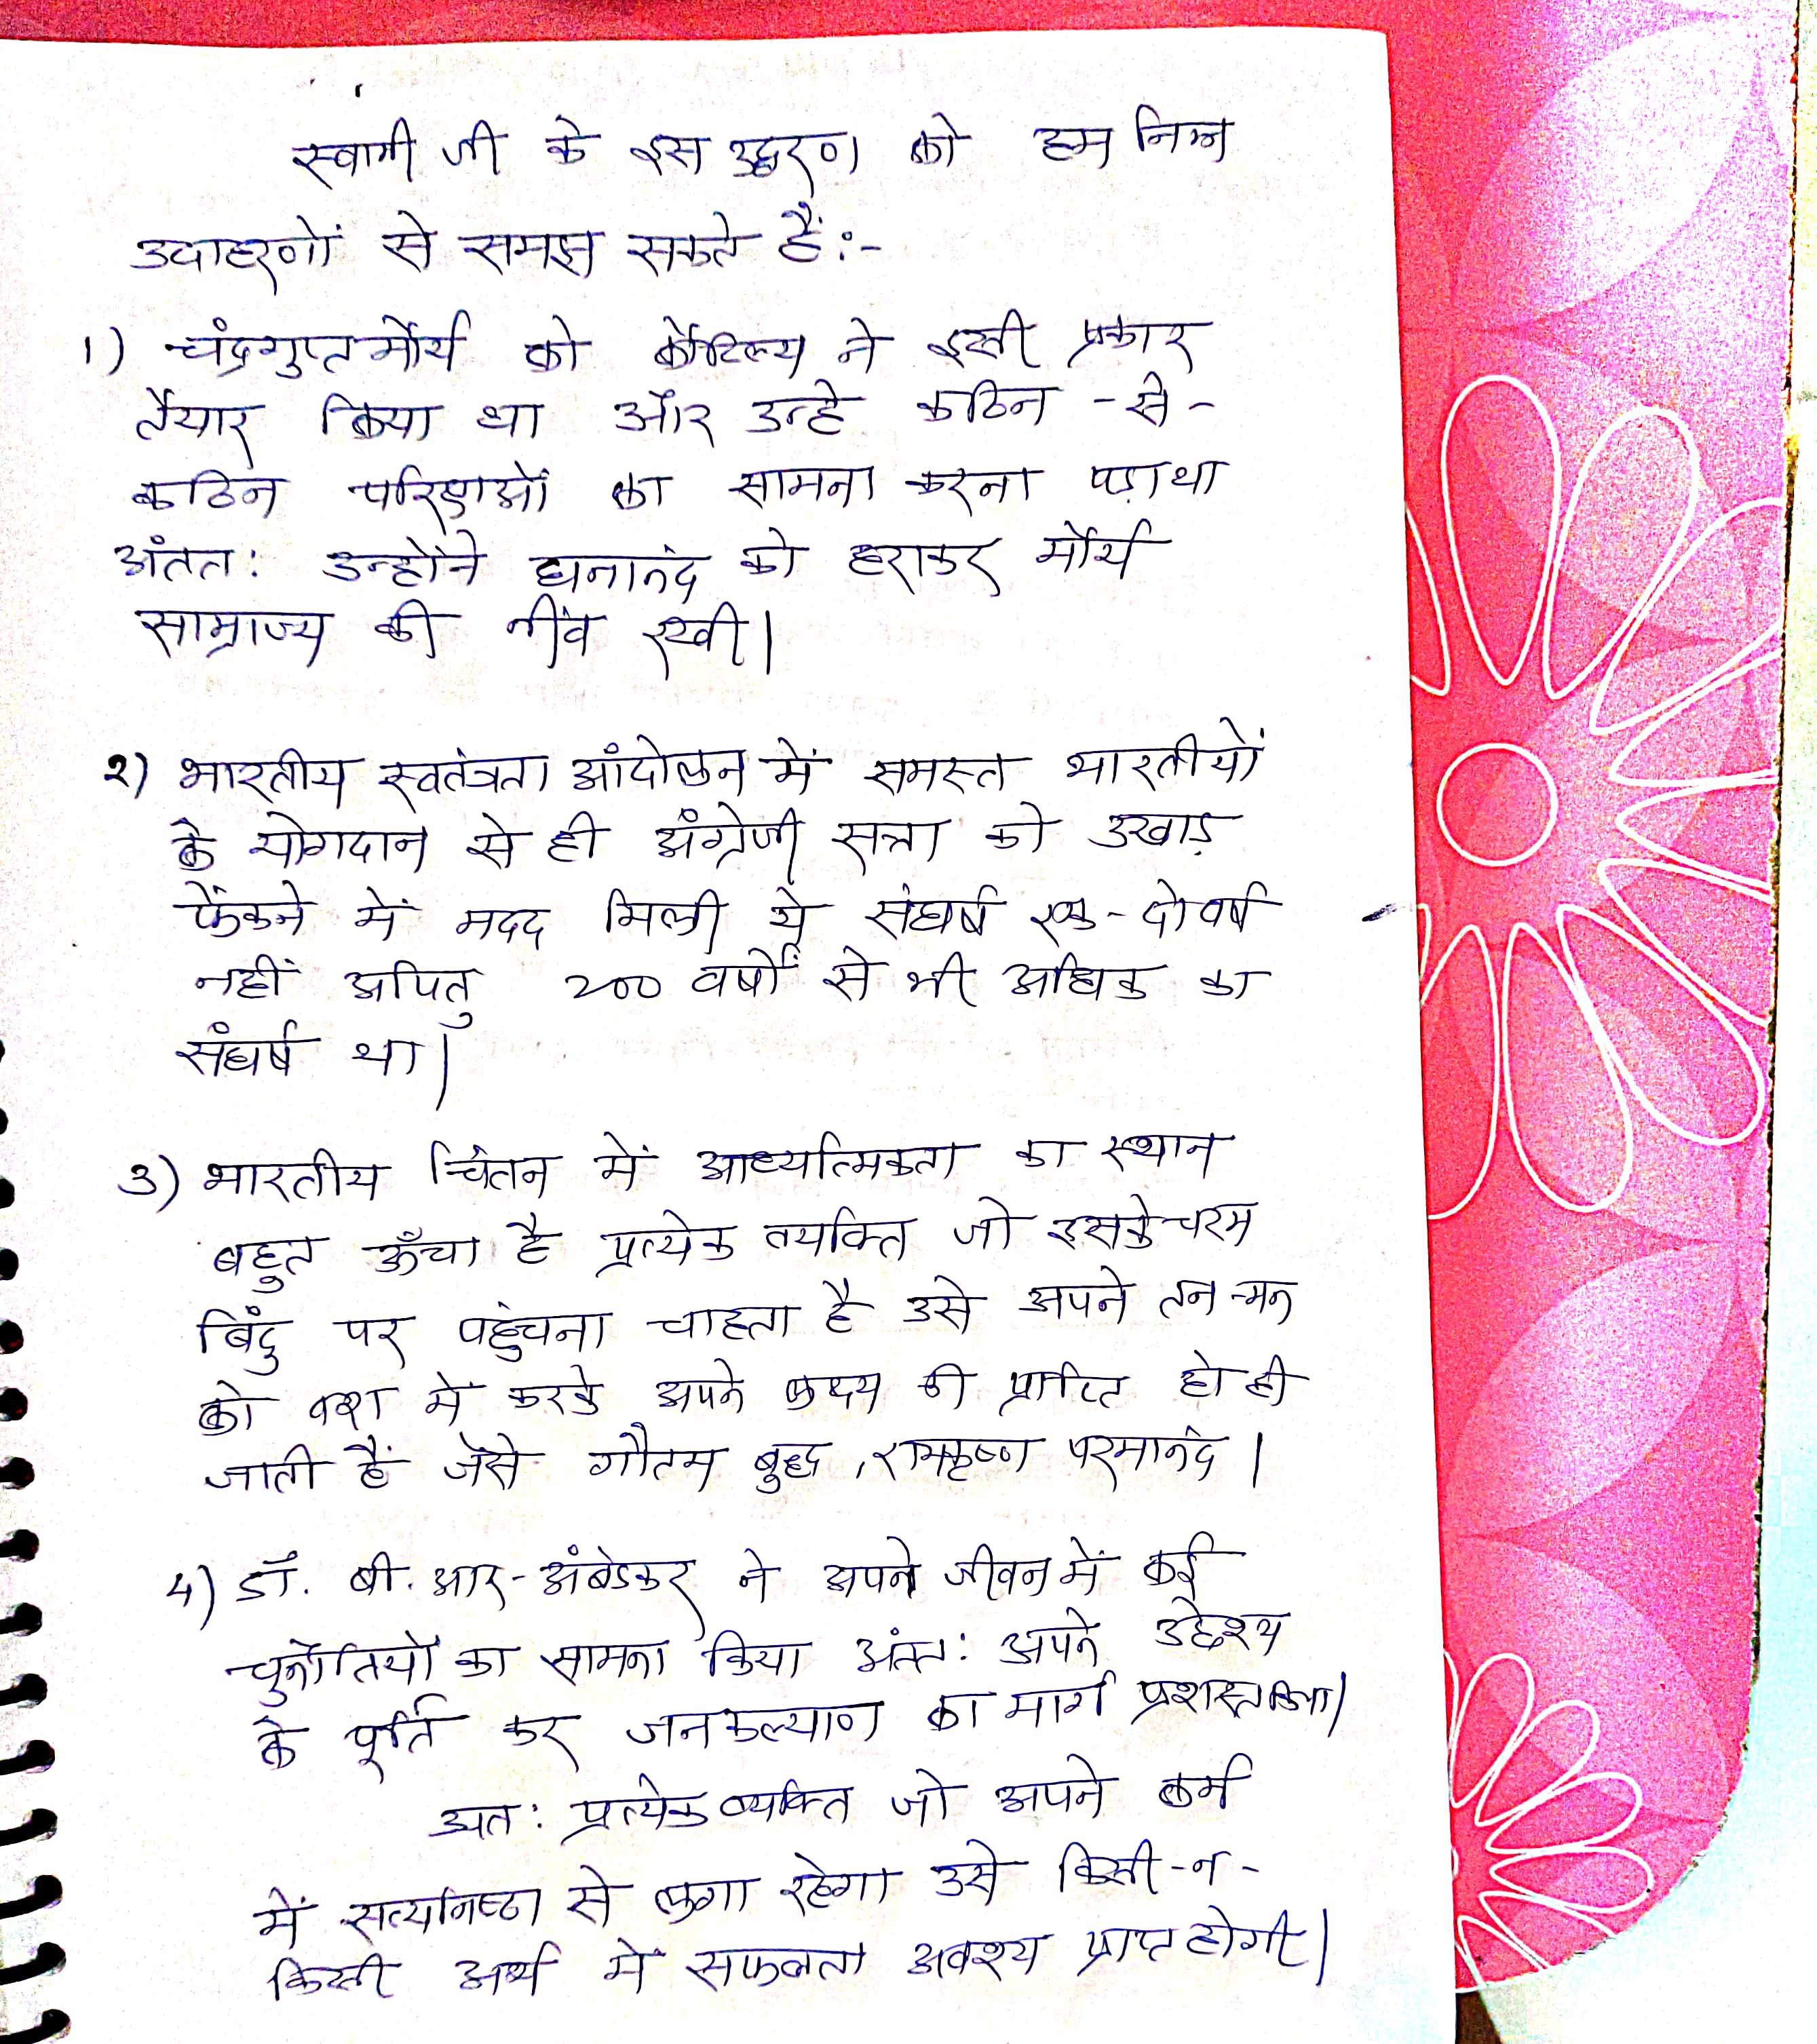 स्वामी जी के इस उद्धरण को हम निम्न
उदाहरणों से समझ सकते हैं:-
1) चंद्रगुप्त मौर्य को कौटिल्य ने इसी प्रकार
तैयार किया था और उन्हे कठिन -से-
कठिन का सामना करना पड़ा था
अंतत: उन्होंने घनानंद को हराकर मौर्य
साम्राज्य की नींव रखी।
२) भारतीय स्वतंत्रता आंदोलन में समस्त भारतीयों
के योगदान से ही अंग्रेजी सत्ता को उखाड़
फेंकने में मदद मिली ये संघर्ष एक-दो वर्ष
नहीं अपितु 200 वर्षों से भी अधिक का
संघर्ष था।
3) भारतीय चिंतन में आध्यात्मिकता का स्थान
बहुत ऊँचा है प्रत्येक व्यक्ति जो इसके चरम
बिंदु पर पहुंचना चाहता है उसे अपने तन-मन
को वश में करके अपने लक्ष्य की प्राप्ति हो ही
जाती हैं जैसे गौतम बुद्ध, रामकृष्ण परमानंद।
4) डॉ. बी. आर-अंबेडकर ने अपने जीवन में कई
चुनौतियों का सामना किया अंतत: अपने उद्देश्य
के पूर्ति कर जनकल्याण का मार्ग प्रशस्त किया।
अत: प्रत्येक व्यक्ति जो अपने कर्म
में सत्यनिष्ठा से लगा रहेगा उसे किसी-न-
किसी अर्थ में सफलता अवश्य प्राप्त होगी।